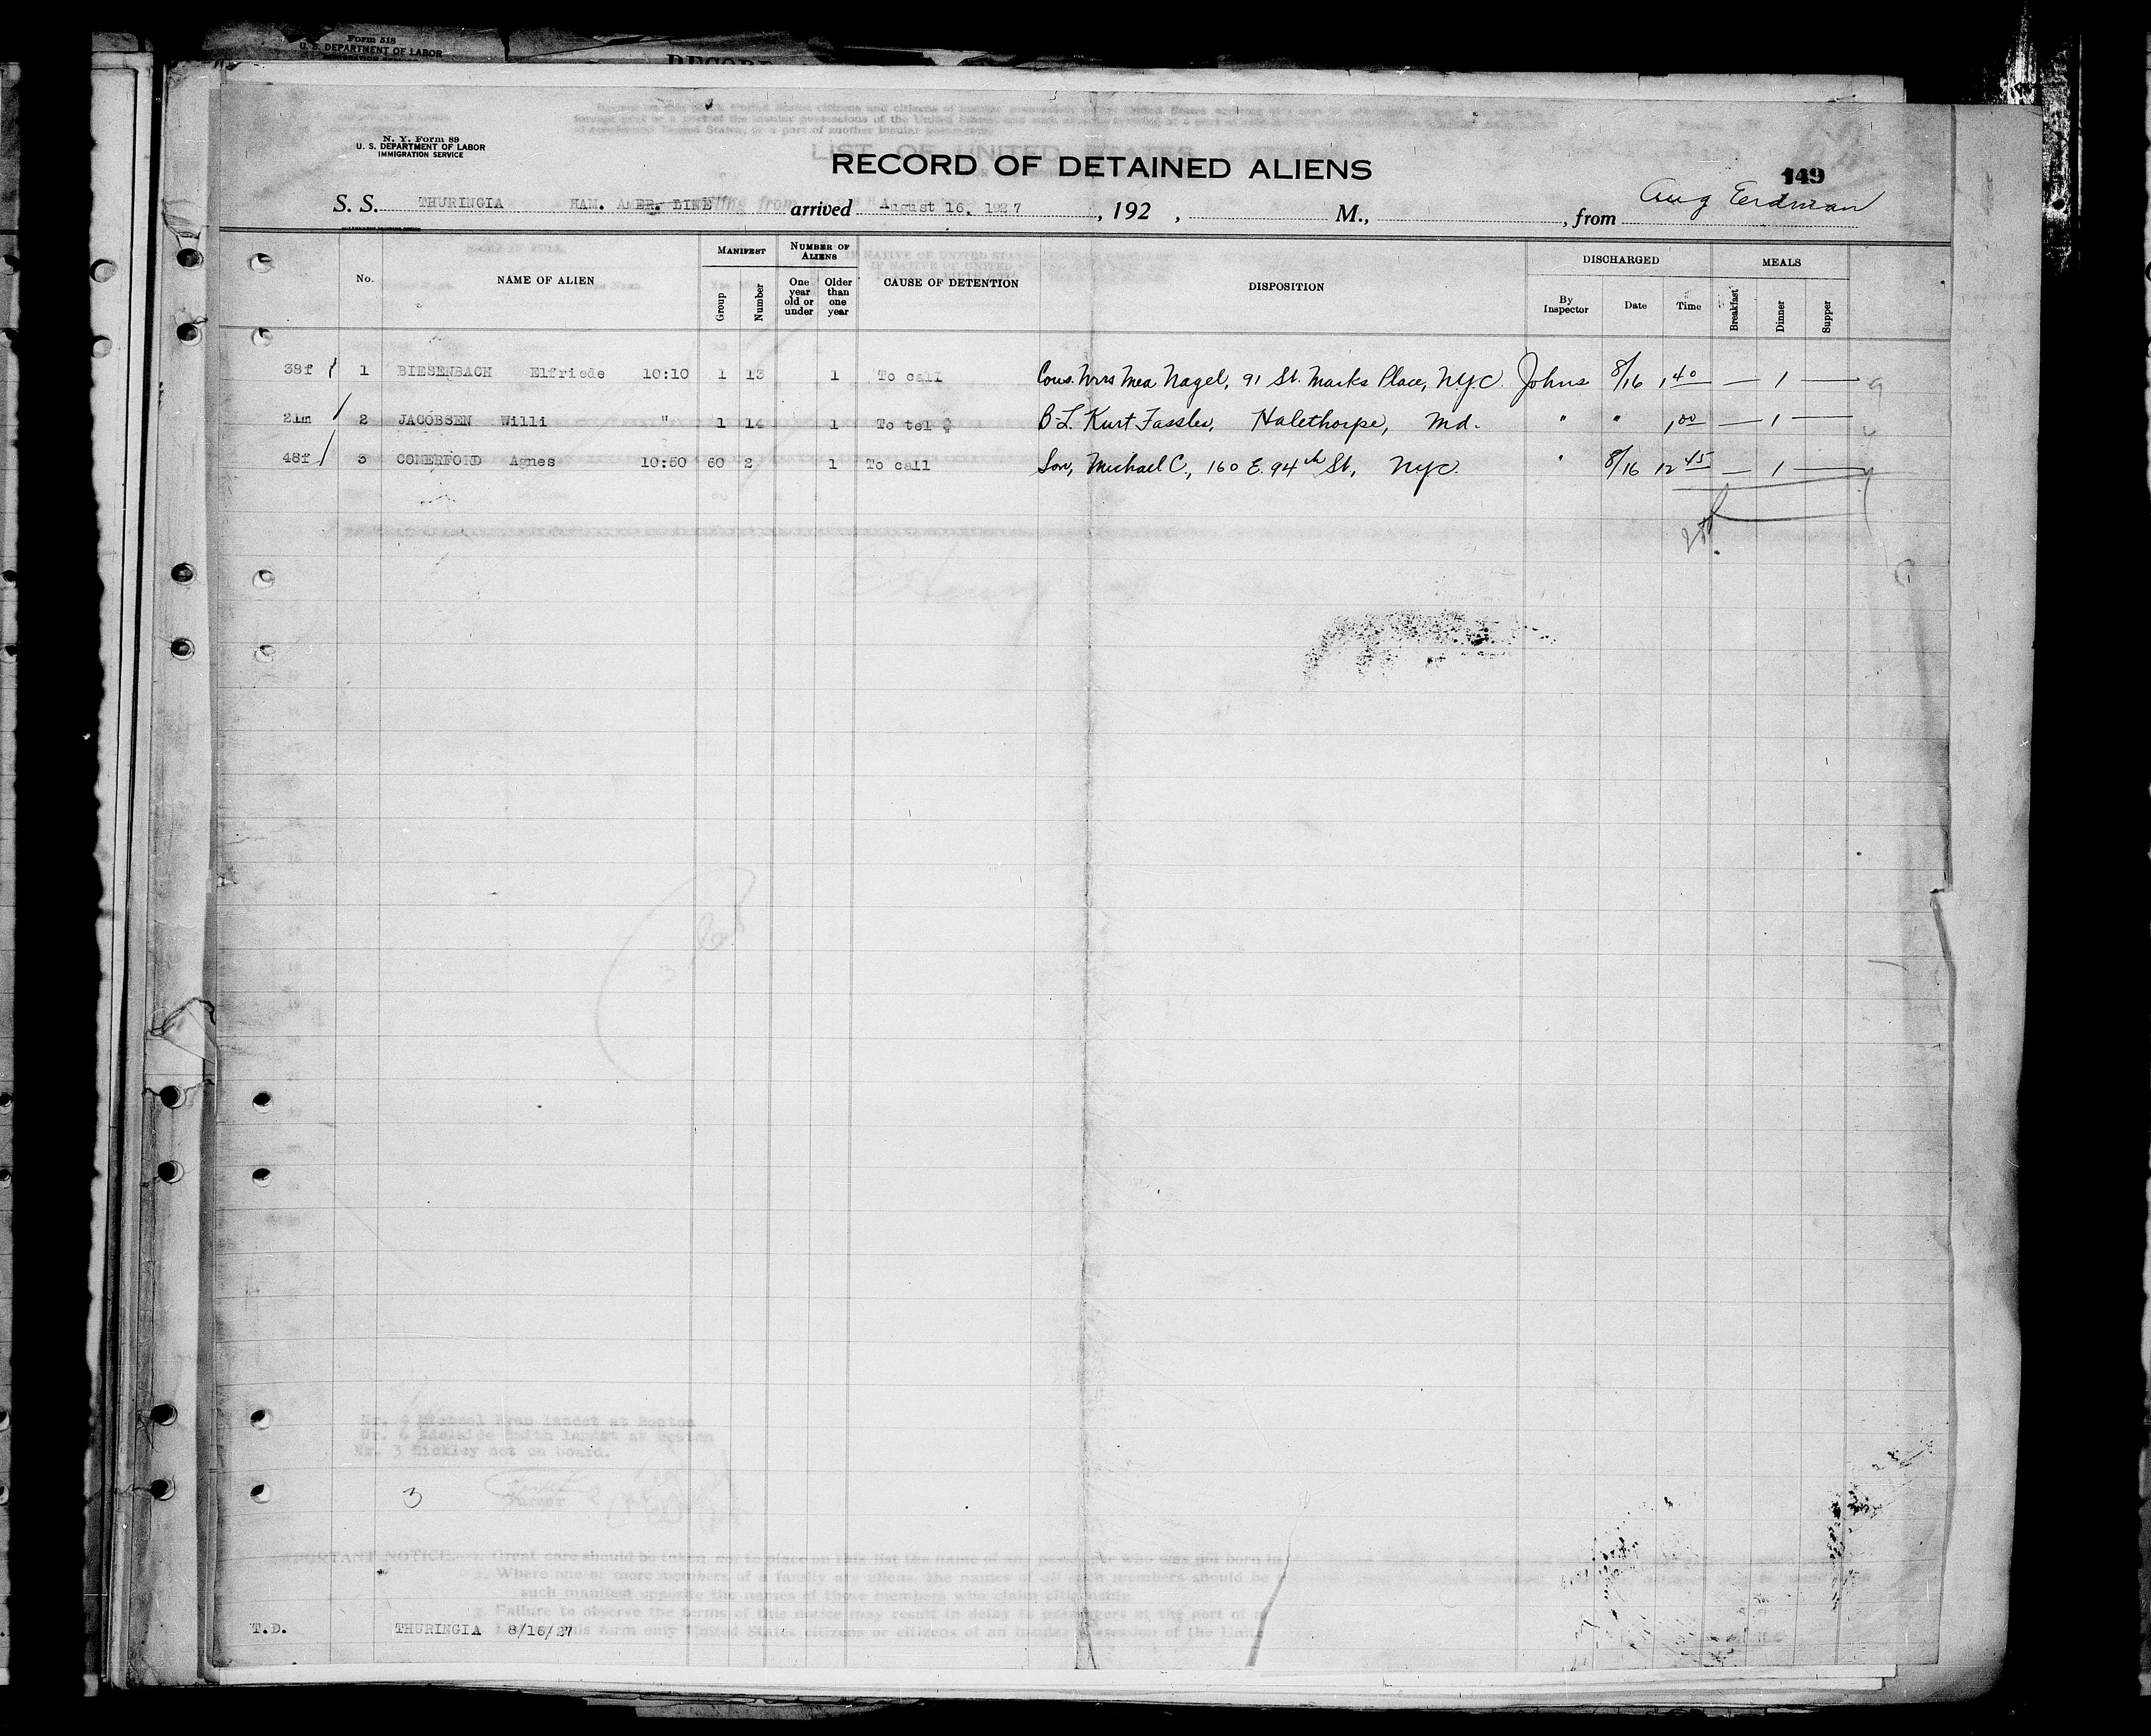 Form 518
U. S. DEPARTMENT OF LABOR
N. Y. Form 89
U. S. DEPARTMENT OF LABOR
IMMIGRATION SERVICE
LIST OF UNITED STATES
RECORD OF DETAINED ALIENS
149
S. S. THURINGIA HAM. AMER. LINE arrived August 16, 1927, 192 , M., , from Aug Eerdman
No. NAME OF ALIEN MANIFEST Group Number NUMBER OF ALIENS One year old or under Older than one year CAUSE OF DETENTION DISPOSITION DISCHARGED By Inspector Date Time MEALS Breakfast Dinner Supper
38f / 1 BIESENBACH Elfriede 10:10 1 13 1 To call Cous. Mrs Mea Nagel, 91 St. Marks Place, N.Y.C. Johns 8/16 1 40 — 1 —
21m / 2 JACOBSEN Willi " 1 14 1 To tel B-L. Kurt Fassler, Halethorpe, Md. " " 1 00 — 1 —
48f / 3 COMERFORD Agnes 10:50 60 2 1 To call Son, Michael C, 160 E. 94th St, N.Y.C. " 8/16 12 45 — 1 —
Nr. 4 Michael Ryan landet at Boston
Nr. 6 Adelaide Smith landet at Boston
Nr. 3 Hickley not on board.
3
Purser
IMPORTANT NOTICE.— Great care should be taken not to place on this list the name of any passenger who was not born in
2. Where one or more members of a family are aliens, the names of all such members should be
such manifest opposite the names of those members who claim citizenship
3. Failure to observe the terms of this notice may result in delay to passengers at the port of
T.D. THURINGIA 8/16/27
this form only United States citizens or citizens of an insular possession of the United